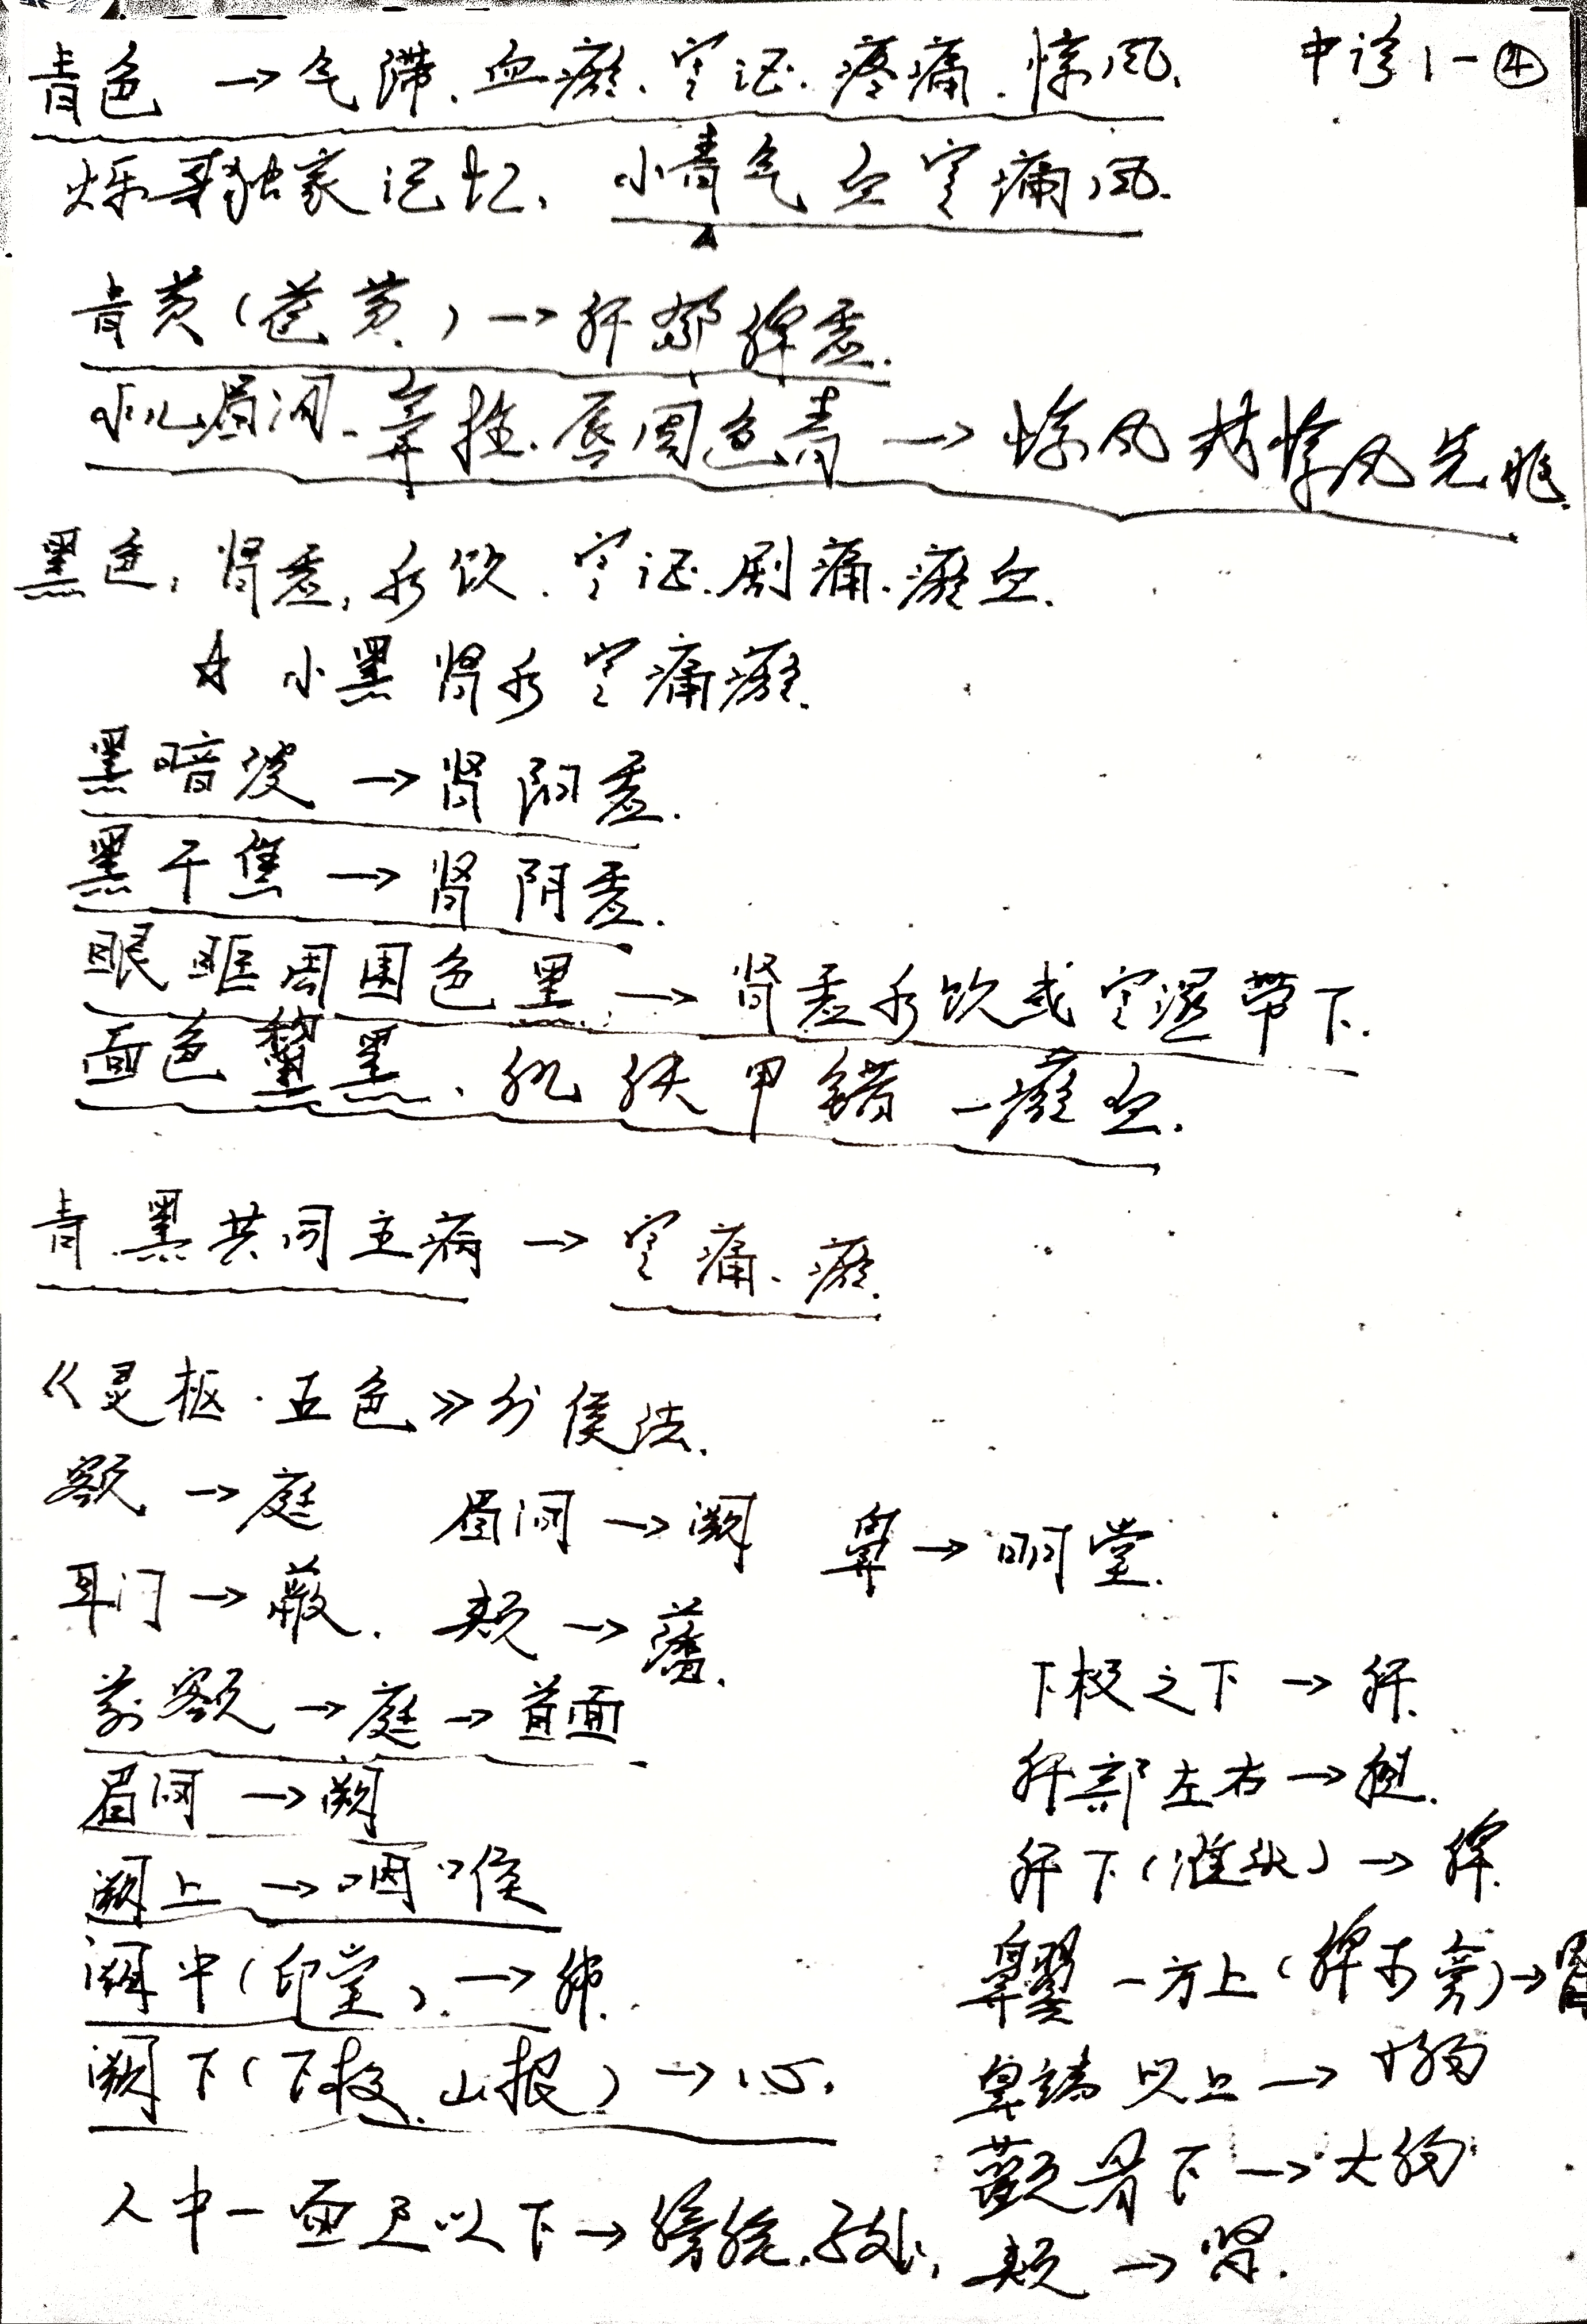 中诊1-④
青色→气滞、血瘀、寒证、疼痛、惊风、
烁哥独家记忆、小青气血寒痛风.
青黄(苍黄)→肝郁脾虚.
小儿眉间、鼻柱、唇周色青→惊风或惊风先兆.
黑色,肾虚,水饮、寒证、剧痛、瘀血.
☆ 小黑肾水寒痛瘀.
黑暗淡→肾阳虚.
黑干焦→肾阴虚.
眼眶周围色黑→肾虚水饮或寒湿带下.
面色黧黑、肌肤甲错-瘀血.
青、黑共同主病→寒痛、瘀.
《灵枢·五色》分侯法.
额→庭 眉间→阙 鼻→明堂.
耳门→蔽. 颊→藩.
前额→庭→首面
眉间→阙
阙上→咽喉
阙中(印堂)→肺.
阙下(下极、山根)→心.
人中-面王以下→膀胱、子处,
下极之下→肝.
肝部左右→胆.
肝下(准头)→脾.
鼻翼-方上(脾两旁)→胃
鼻端以上→小肠
颧骨下→大肠
颊→肾.